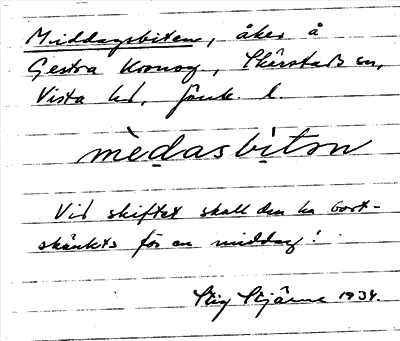 Middagsbiten, åker å
Gestra Kronog, Skärstads sn,
Vista hd, Jönk. l.
mèdasbitən
Vid skiftet skall den ha bort-
skänkts för en middag!
Stig Stjärne 1934.